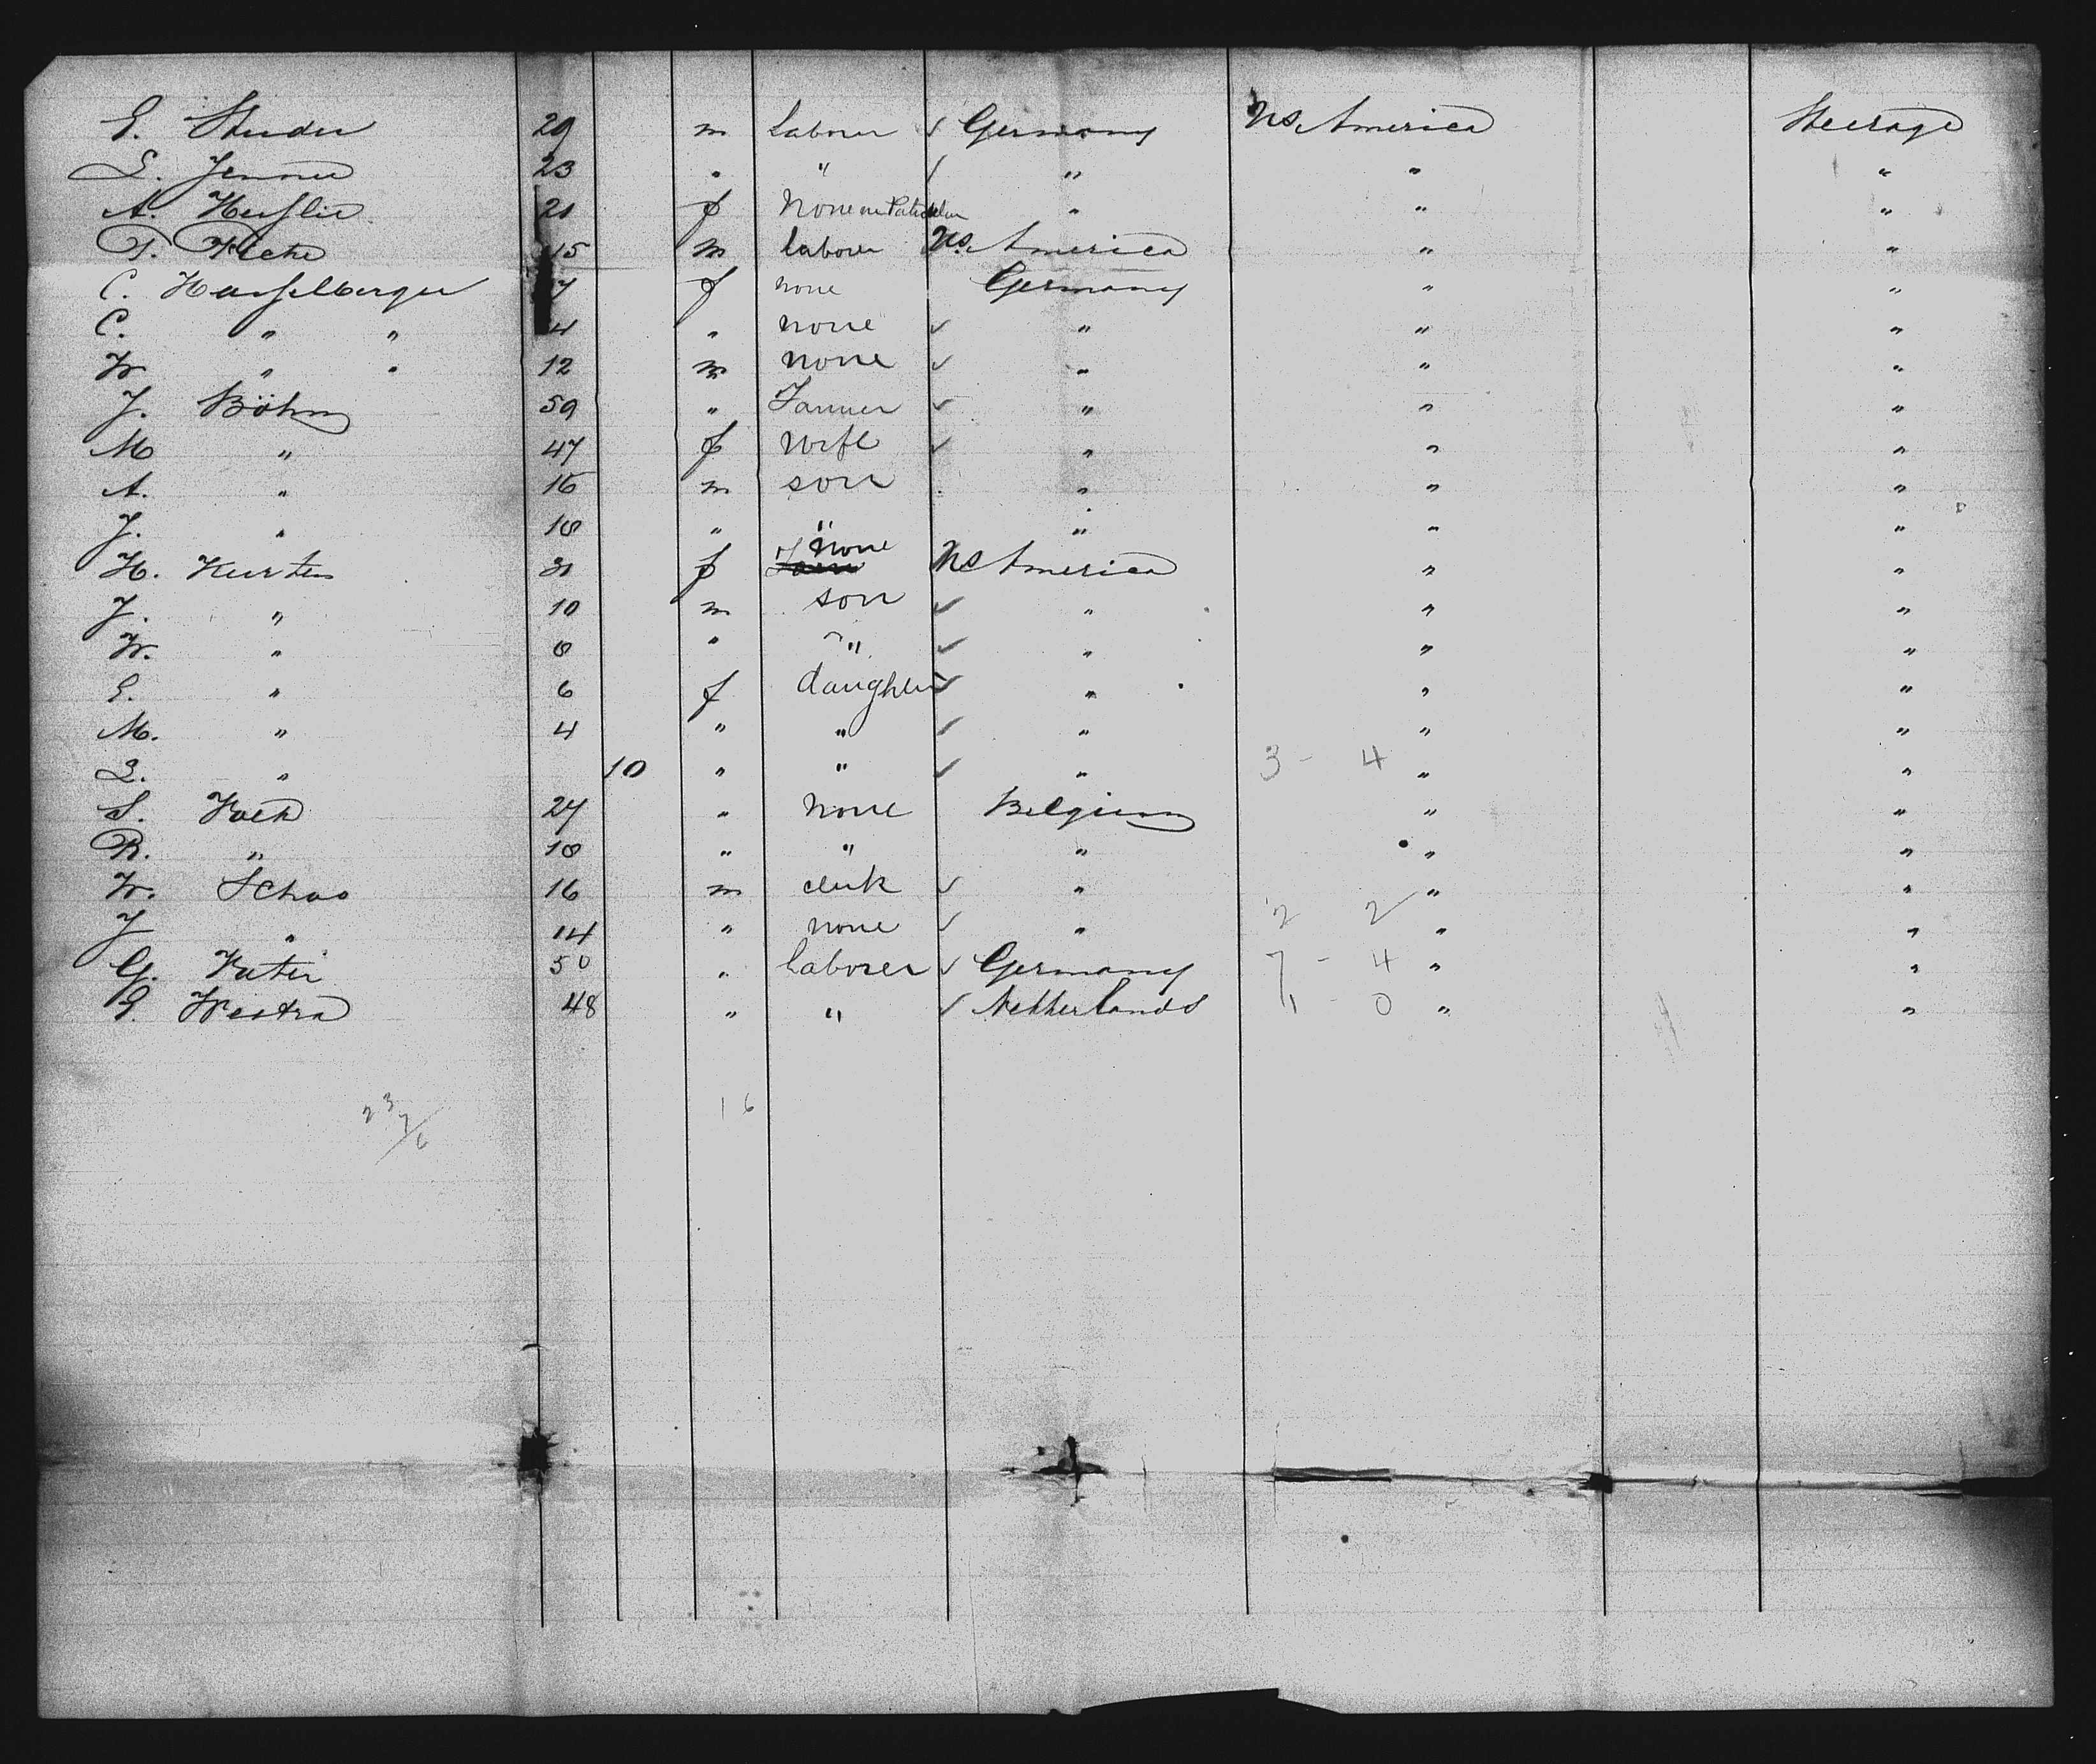 E. Studer 29 m Laborer ✓ Germany U.S. America Steerage
L. Jenner 23 " " / " " "
A. Heuslie 21 f None " " "
T. Fiche 15 m laborer U.S. America " "
C. Hasselberger 7 f none Germany " "
C. " " 4 " none ✓ " " "
W " " 12 m none ✓ " " "
J. Böhm 59 " Farmer ✓ " " "
M " 47 f wife ✓ " " "
A. " 15 m son " " "
J. " 10 " " " " "
H. Kursten 31 f none U.S. America " "
J. " 10 m son ✓ " " "
W. " 8 " " ✓ " " "
E. " 6 f daughter ✓ " " "
M. " 4 " " ✓ " " "
L. " 10 " " ✓ " 3 - 4 " "
S. 27 " none Belgium " "
R. " 18 " " " " "
W. Schas 16 m clerk ✓ " " "
J " 14 " none ✓ " 2 2 " "
G. Vater 50 " laborer ✓ Germany 7 - 4 " "
G. Westra 48 " " ✓ Netherlands 11 - 0 " "
23 7/6 16